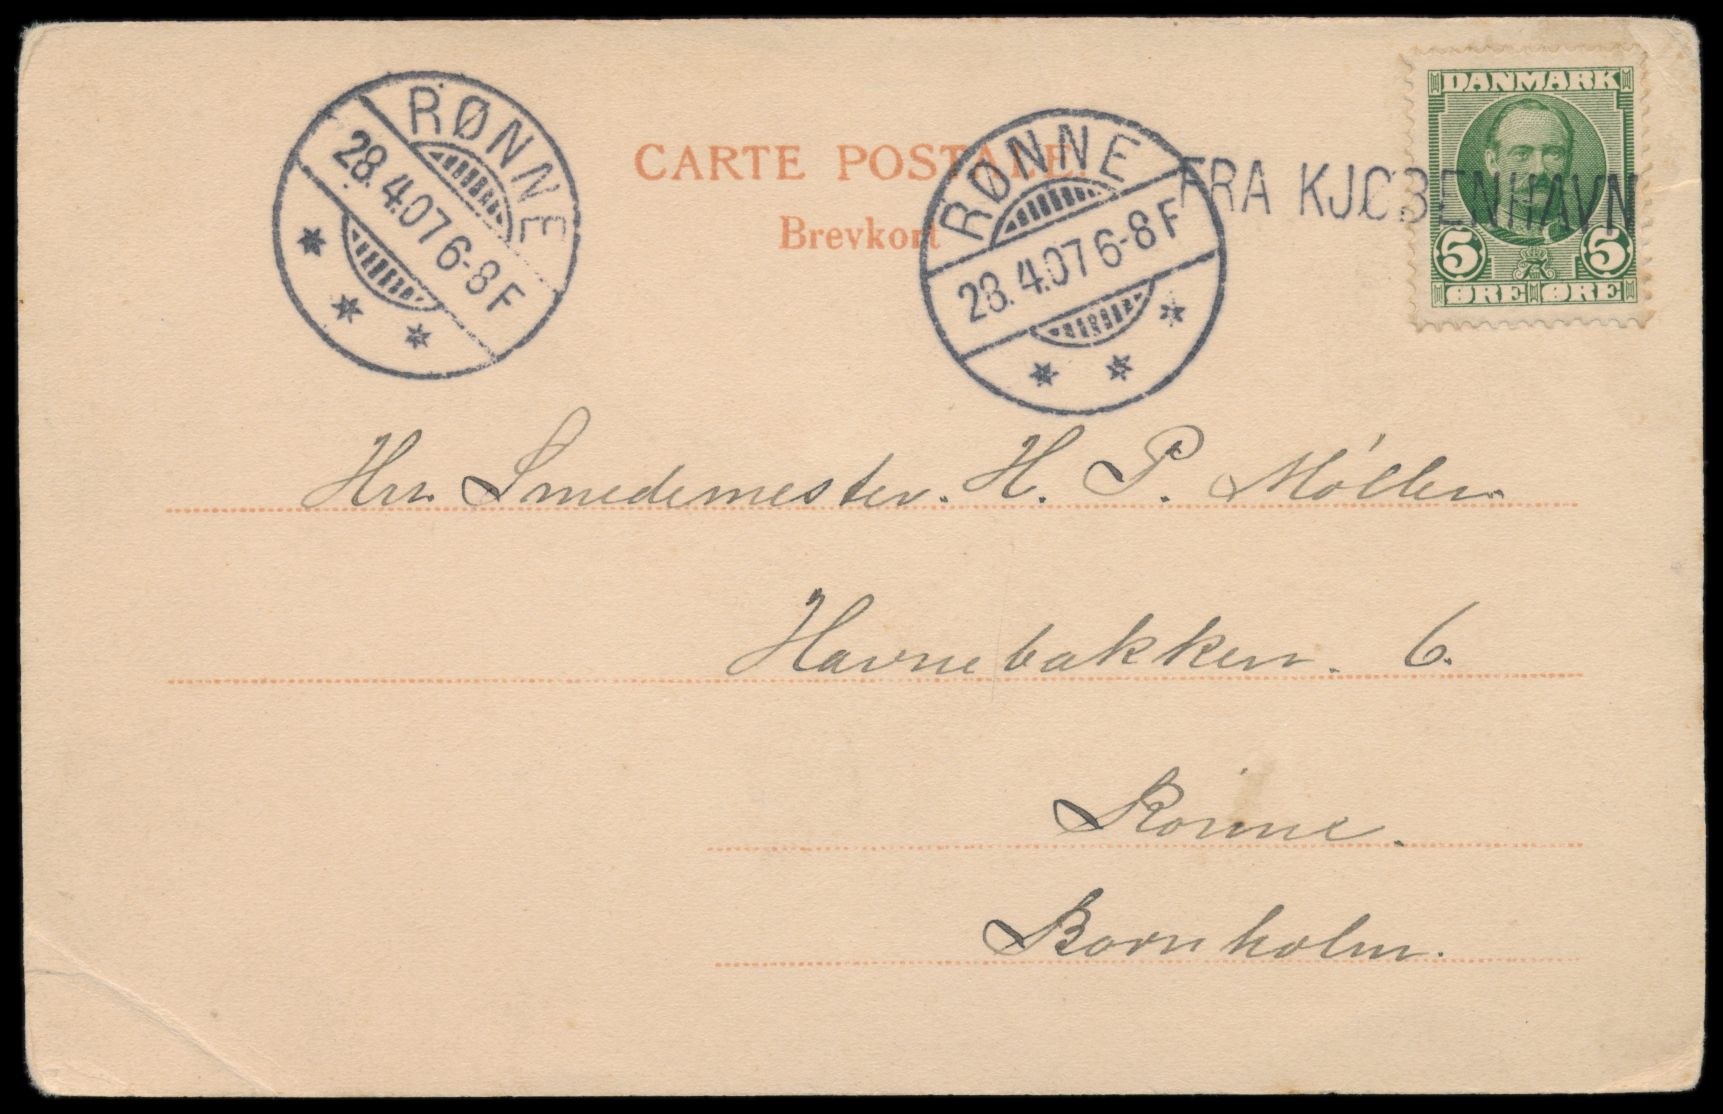 DANMARK
5 5
ØRE ØRE
FRA KJØBENHAVN
RØNNE
28.4.07 6-8 F
RØNNE
28.4.07 6-8 F
CARTE POSTALE.
Brevkort
Hrr. Smedemester. H. P. Møller.
Havnebakken. 6.
Rönne.
Bornholm.